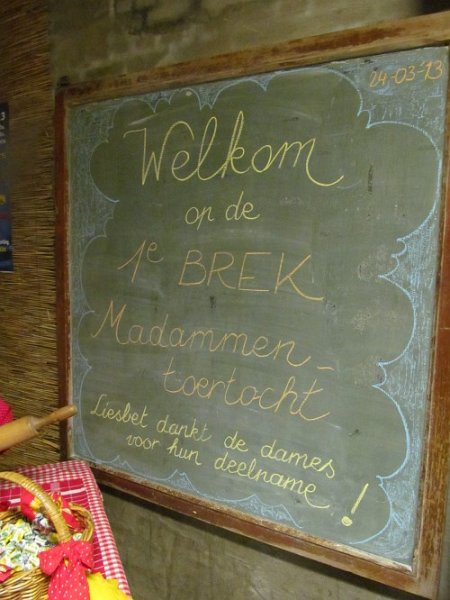 24-03-'13
Welkom
op de
1e BREK
Madammen-
toertocht
Liesbet dankt de dames
voor hun deelname!